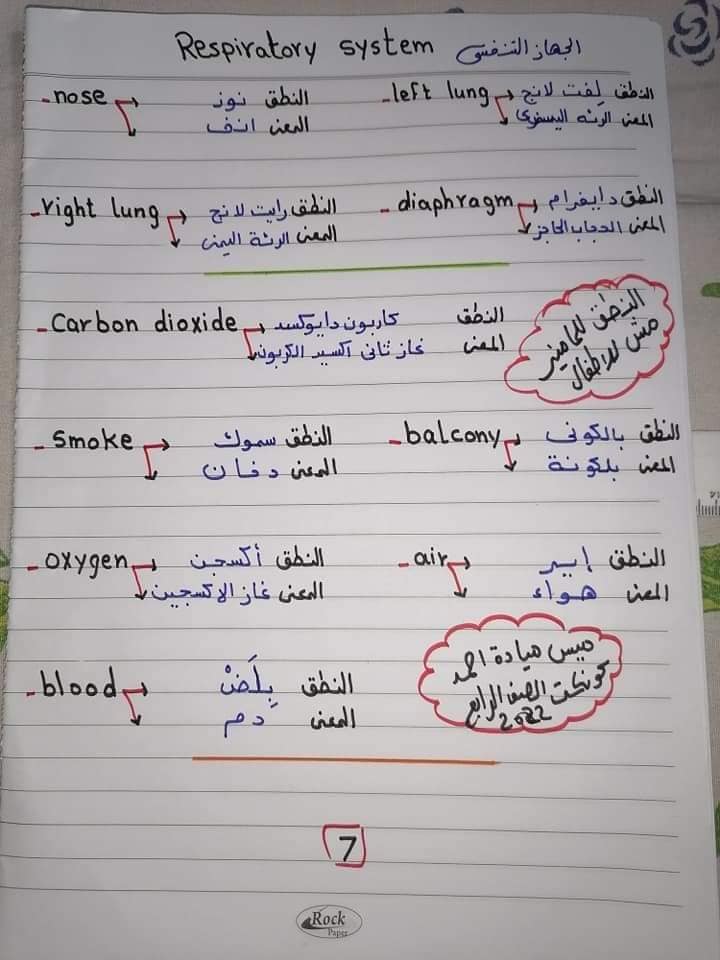 Respiratory system الجهاز التنفسى
- nose النطق نوز
المعنى انف
- left lung النطق لِفت لانج
المعنى الرئه اليسرى
- right lung النطق رايت لانج
المعنى الرئة اليمنى
- diaphragm النطق دايفرام
المعنى الحجاب الحاجز
- Carbon dioxide النطق كاربون دايوكسد
المعنى غاز ثانى اكسيد الكربون
النطق للمامىز
مش للاطفال
- smoke النطق سموك
المعنى دخان
- balcony النطق بالكونى
المعنى بلكونة
- oxygen النطق أكسجن
المعنى غاز الاكسجين
- air النطق إير
المعنى هواء
- blood النطق بِلَضْ
المعنى دم
ميس ميادة احمد
كونكت الصف الرابع
2022
7
Rock
Paper